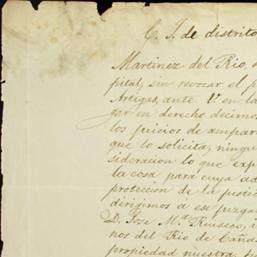 C. J. de distrito
Martinez del Rio, a
pital, sin revocar el p
Artigas, ante V. en la
gar en derecho decimos
los juicios de ampar
que lo solicita, ningu
sideracion lo que exp
la cosa para cuya ad
proteccion de la justi
dirigimos á ese juzga
D. Jose Mª Rusaco, i
nos del Rio de Caña
propiedad nuestra